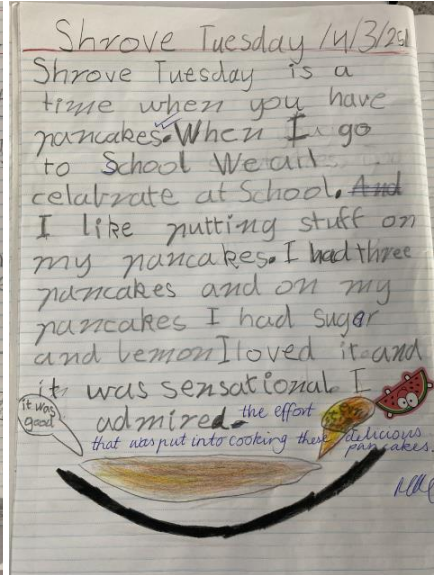 Shrove Tuesday 4/3/25
Shrove Tuesday is a
time when you have
pancakes. When I go
to School We all
celabrate at School. And
I like putting stuff on
my pancakes. I had three
pancakes and on my
pancakes I had sugar
and lemon I loved it and
it was sensational I
admired the effort
that was put into cooking these delicious
pancakes.
it was
good